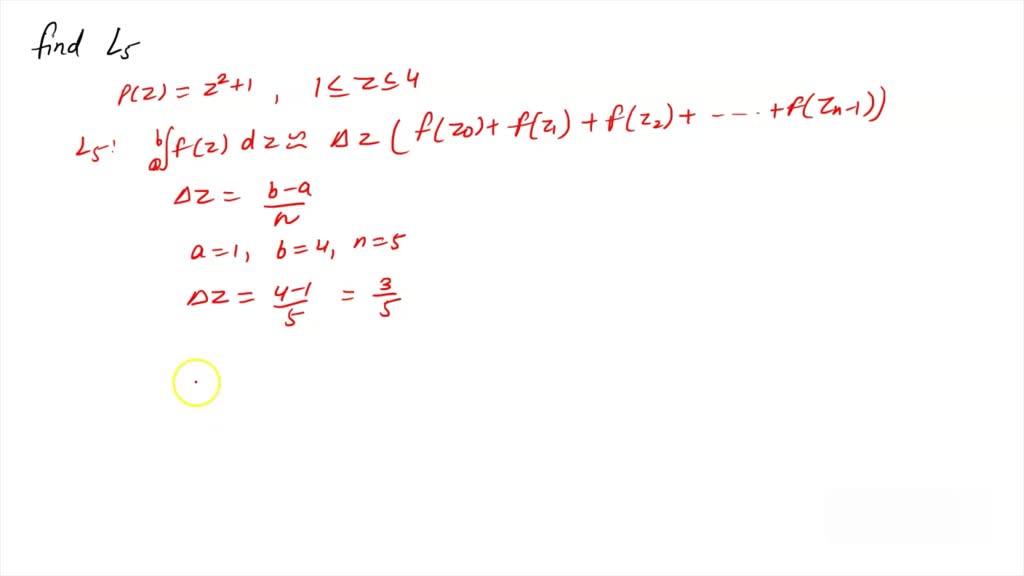 find L5
P(z) = z²+1 , 1 ≤ z ≤ 4
L5: a∫b f(z) dz ≈ Δz ( f(z0) + f(z1) + f(z2) + ---- + f(zn-1))
Δz = b-a/n
a=1, b=4, n=5
Δz = 4-1/5 = 3/5